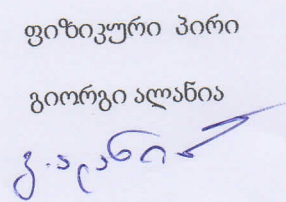 ფიზიკური პირი
გიორგი ალანია
გ. ალანია